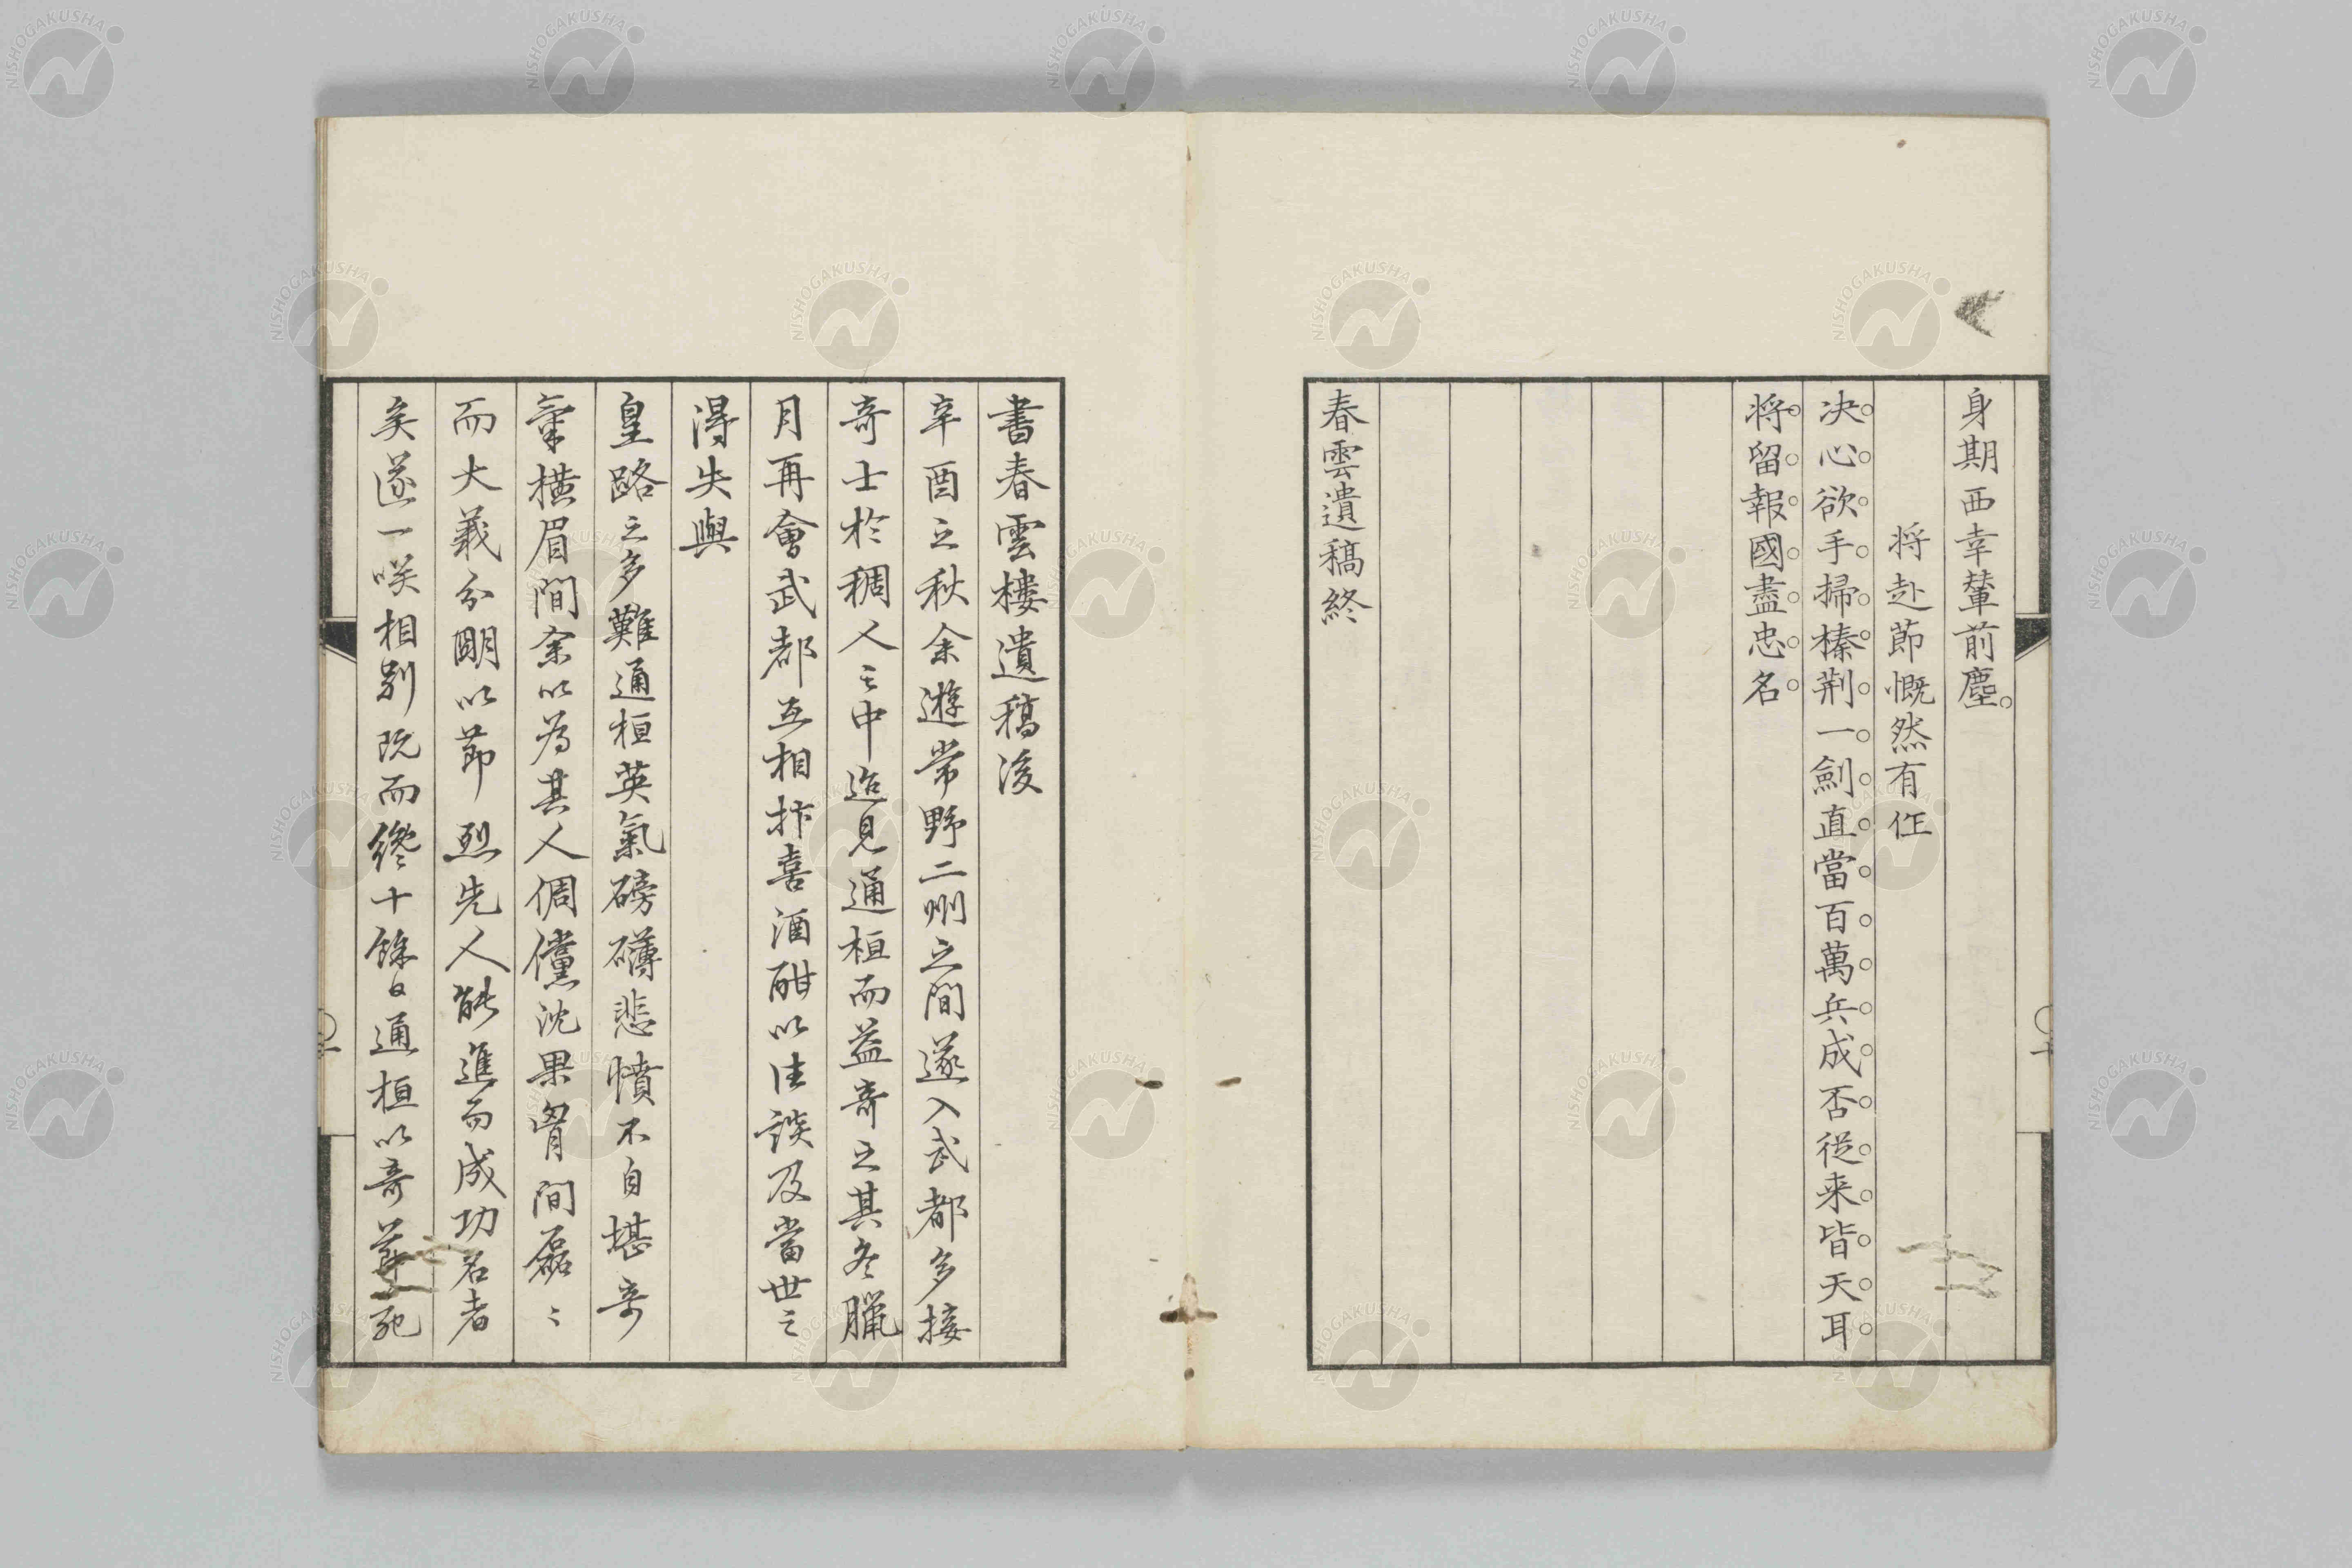 身期西幸輦前塵
将赴節慨然有作
決心欲手掃榛荆一劍直當百萬兵成否従来皆天耳
将留報國盡忠名
春雲遺稿終
書春雲樓遺稿後
辛酉之秋余遊常野二州之間遂入武都多接
奇士於稠人之中迨見通桓而益奇之其冬臘
月再會武都互相抃喜酒酣以往談及當世之
得失與
皇路之多難通桓英氣磅礴悲憤不自堪奇
氣横眉間余以為其人倜儻沈果胷間磊〻
而大義分明以節烈先人能進而成功名者
矣遂一咲相別既而纔十餘日通桓以奇節死
NISHOGAKUSHA